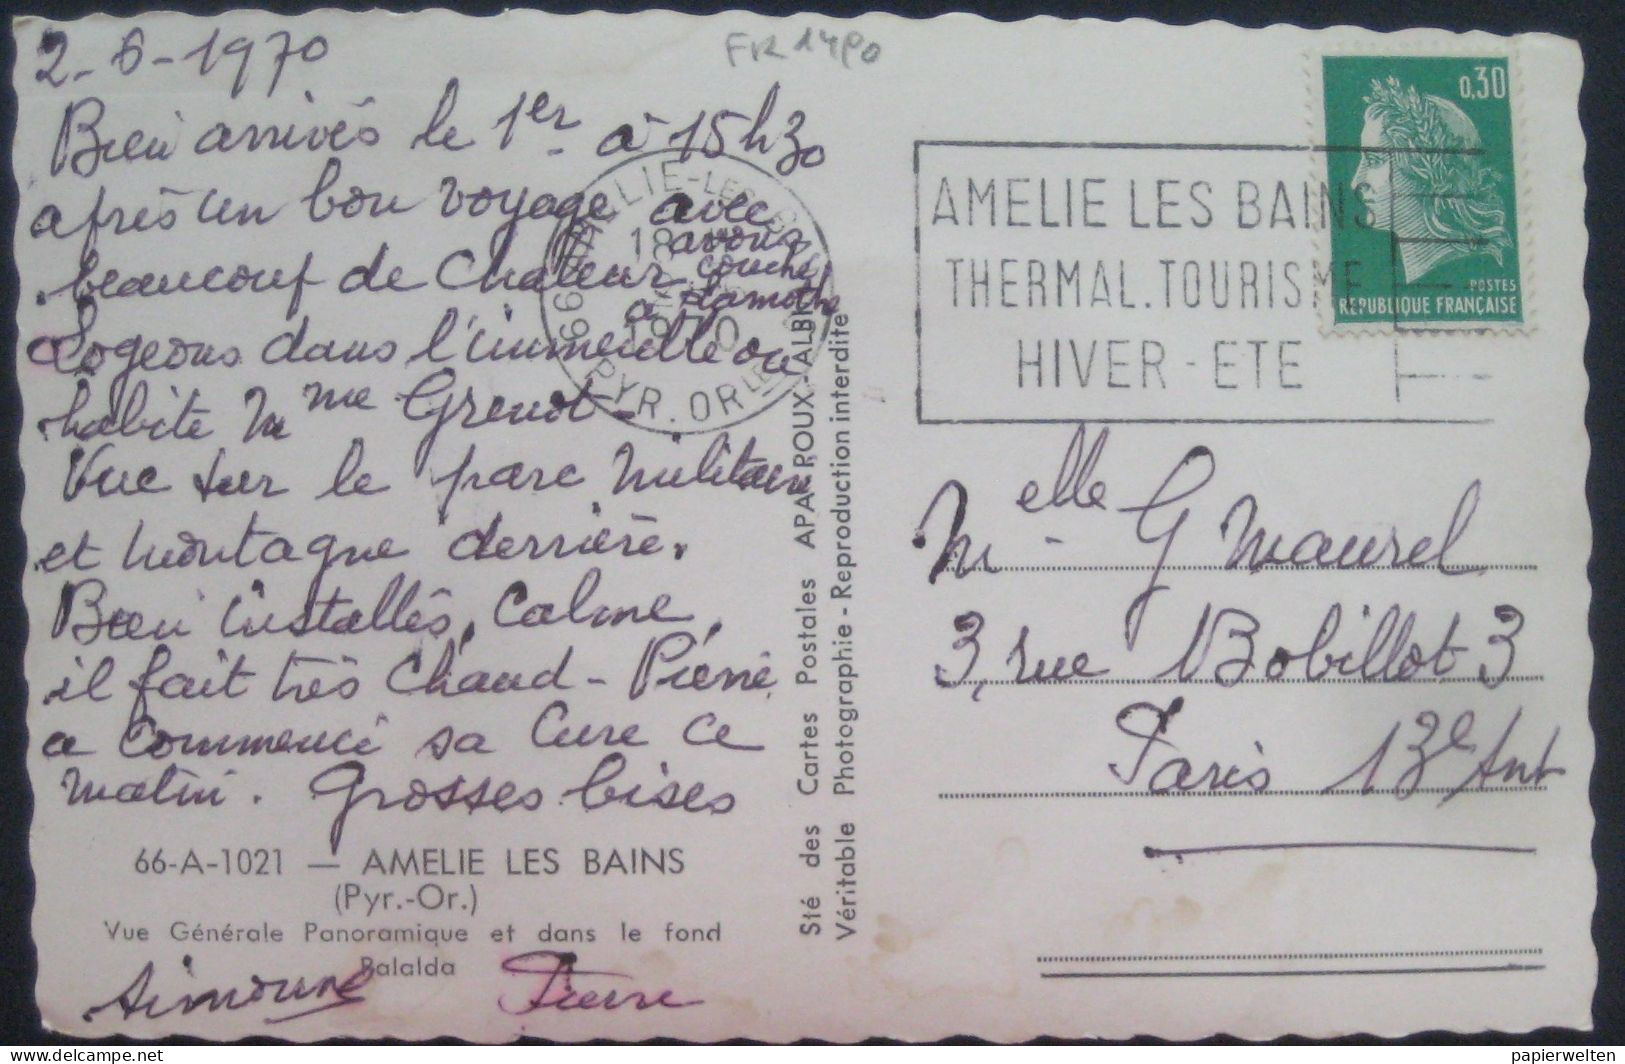 2-6-1970
FR 1490
Bien arrivés le 1er à 15h30
après un bon voyage avec
avons
beaucoup de Chaleur couché
à Lamothe
Logeons dans l'immeuble ou
habite Mme Grenot-
Vue sur le parc militaire
et montagne derrière.
Bien installés, Calme,
il fait très chaud - Pierre
a commencé sa Cure ce
matin. Grosses bises
66-A-1021 — AMELIE LES BAINS
(Pyr.-Or.)
Vue Générale Panoramique et dans le fond
Balalda
Simone Pierre
66 AMELIE-LES-BAINS
18H
1970
PYR. ORLES
Sté des Cartes Postales APA-POUX-ALBI
Véritable Photographie - Reproduction interdite
AMELIE LES BAINS
THERMAL.TOURISME
HIVER - ETE
0,30
POSTES
REPUBLIQUE FRANÇAISE
Melle G Maurel
3, rue Bobillot 3
Paris 13e Arrt
papierwelten